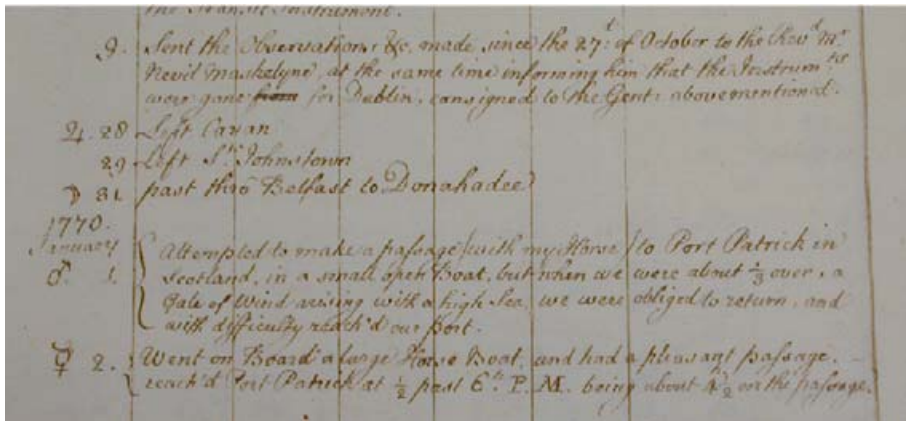 the Transit Instrument.
9. Sent the Observations &c. made since the 27.th of October to the Rev.d Mr
Nevil Maskelyne, at the same time informing him that the Instrum.ts
were gone from for Dublin, consigned to the Gent: abovementioned.
♃. 28 Left Cavan
29 Left S.t Johnstown
☽ 31 past thro Belfast to Donahadee
1770.
January
♂. 1. Attempted to make a passage (with my Horse) to Port Patrick in
Scotland, in a small open Boat, but when we were about ⅓ over, a
Gale of Wind arising with a high Sea, we were obliged to return, and
with difficulty reach'd our Port.
☿ 2. Went on Board a large Horse Boat, and had a pleasant passage. –
reach'd Port Patrick at ½ past 6.h P.M. being about 4½ on the passage.